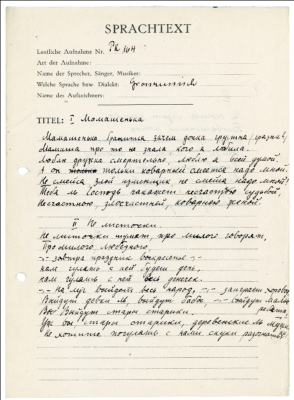 SPRACHTEXT
Lautliche Aufnahme Nr. PK 164
Art der Aufnahme:
Name der Sprecher, Sänger, Musiker:
Welche Sprache bzw. Dialekt:
Name des Aufzeichners:
TITEL: I Момашенька
Мамашенька бранится зачем дочка грустна
Мамаша про то не знала кого я любила.
Люблю дружка смертельно, люблю я всей душой.
А он только коварный смеется надо мной.
Не смейся злой изменщик не смейся надо мной!
Тебя Господь накажет несчастною судьбой
Несчастною, злосчастной, коварною женой.
II Не листочки.
Не листочки шумят, про милого говорят,
Про милого любезного,
завтра праздник воскресенье
нам гулять с ней будет день,
нам гулять с ней весь денечек.
На луг выйдет весь народ, заиграем хоровод
Выйдут девки, выйдут бабы, выйдут малы
ребята
Выйдут стары старики.
Уж вы стары старики, деревенские мужики
Не хотите погулять с нами скуки разогнать